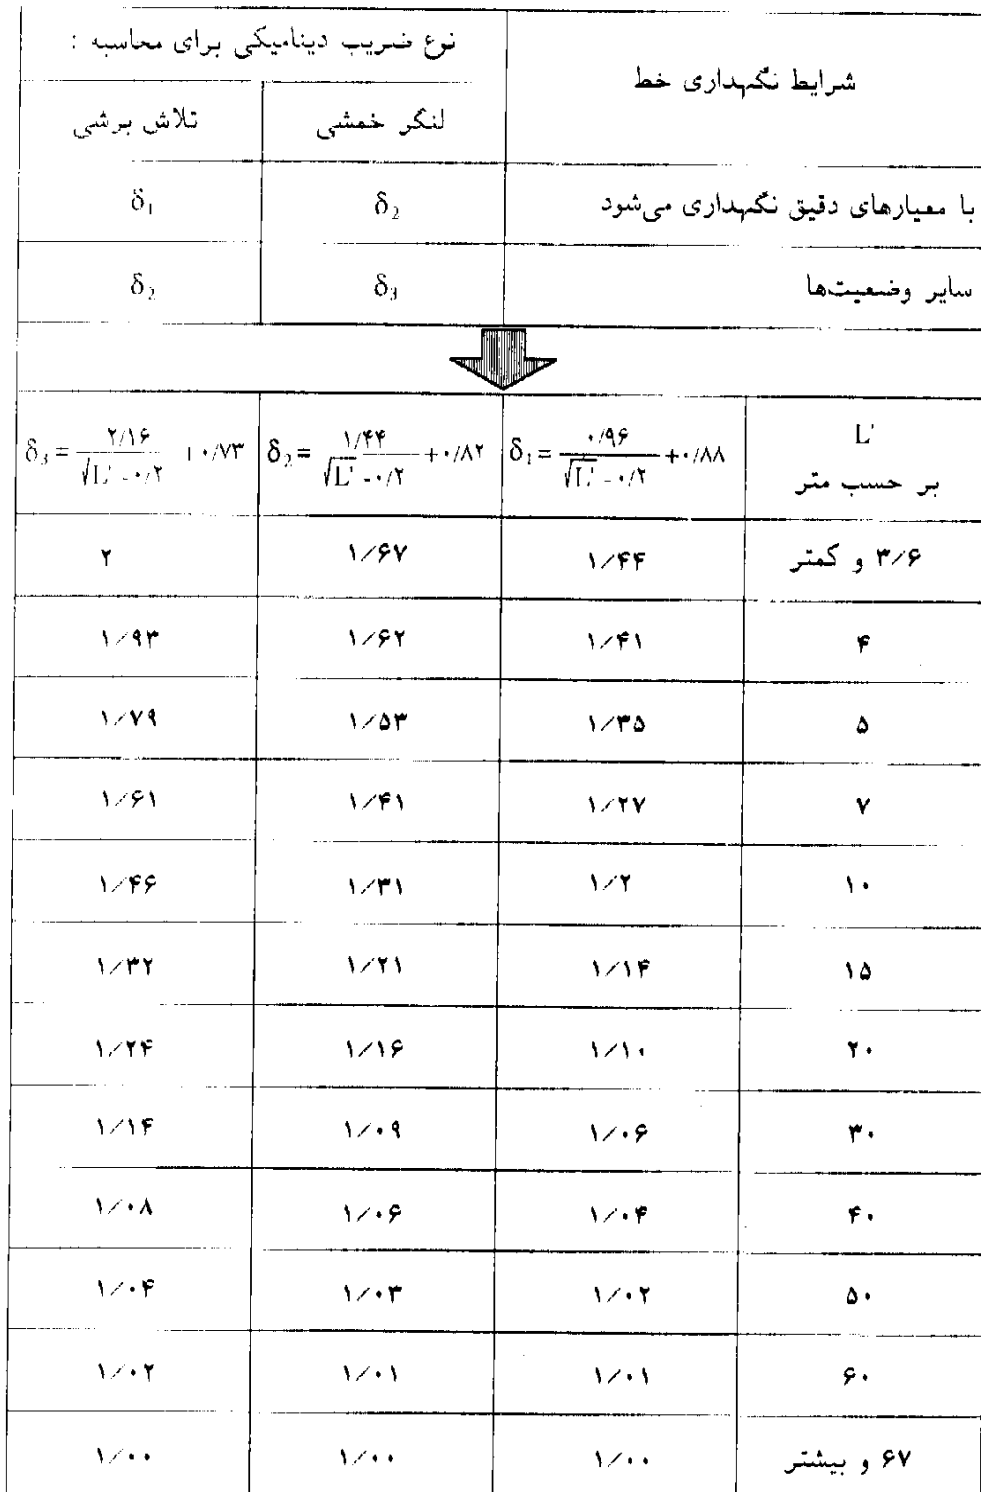 نوع ضریب دینامیکی برای محاسبه :
شرایط نگهداری خط
لنگر خمشی
تلاش برشی
با معیارهای دقیق نگهداری می‌شود δ₂ δ₁
سایر وضعیت‌ها δ₃ δ₂
L'
بر حسب متر
δ₁ = ۰/۹۶ / (√L' - ۰/۲) + ۰/۸۸
δ₂ = ۱/۴۴ / (√L' - ۰/۲) + ۰/۸۲
δ₃ = ۲/۱۶ / (√L' - ۰/۲) + ۰/۷۳
۳/۶ و کمتر ۱/۴۴ ۱/۶۷ ۲
۴ ۱/۴۱ ۱/۶۲ ۱/۹۳
۵ ۱/۳۵ ۱/۵۳ ۱/۷۹
۷ ۱/۲۷ ۱/۴۱ ۱/۶۱
۱۰ ۱/۲ ۱/۳۱ ۱/۴۶
۱۵ ۱/۱۴ ۱/۲۱ ۱/۳۲
۲۰ ۱/۱۰ ۱/۱۶ ۱/۲۴
۳۰ ۱/۰۶ ۱/۰۹ ۱/۱۴
۴۰ ۱/۰۴ ۱/۰۶ ۱/۰۸
۵۰ ۱/۰۲ ۱/۰۳ ۱/۰۴
۶۰ ۱/۰۱ ۱/۰۱ ۱/۰۲
۶۷ و بیشتر ۱/۰۰ ۱/۰۰ ۱/۰۰